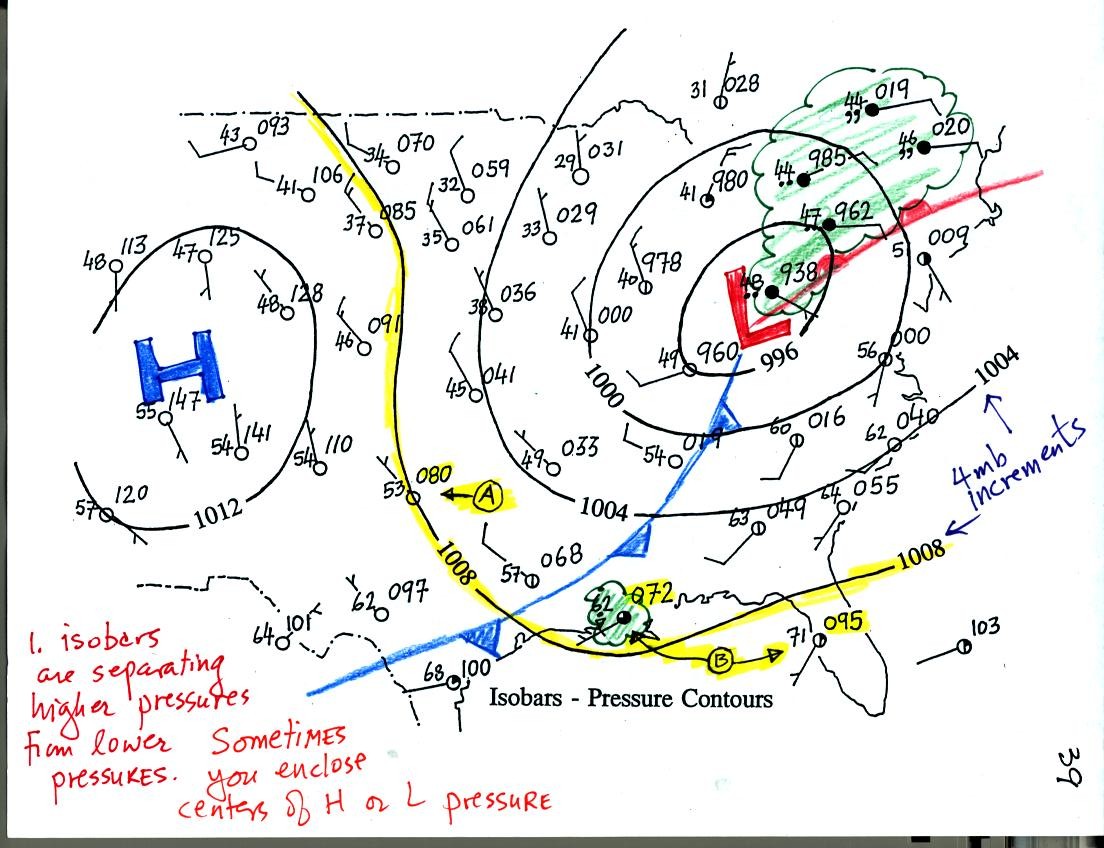 31 028
44 019
,,
46 020
,,
43 093
34 070
44 985
..
29 031
32 059
41 106
41 980
37 085
47 962
33 029
35 061
009
48 113
47 125
40 978
48 938
..
48 128
38 036
41 000
46 091
960
49
996
000
56
H
L
1000
45 041
1004
55 147
60 016
040
62
54 141
54 110
49 033
54 019
4mb
increments
53 080
A
64 055
57 120
1012
1004
63 049
1008
1008
57 068
62 097
62 072
64 101
71 095
103
B
68 100
Isobars - Pressure Contours
1. isobars
are separating
higher pressures
from lower
pressures.
Sometimes
you enclose
centers of H or L pressure
39